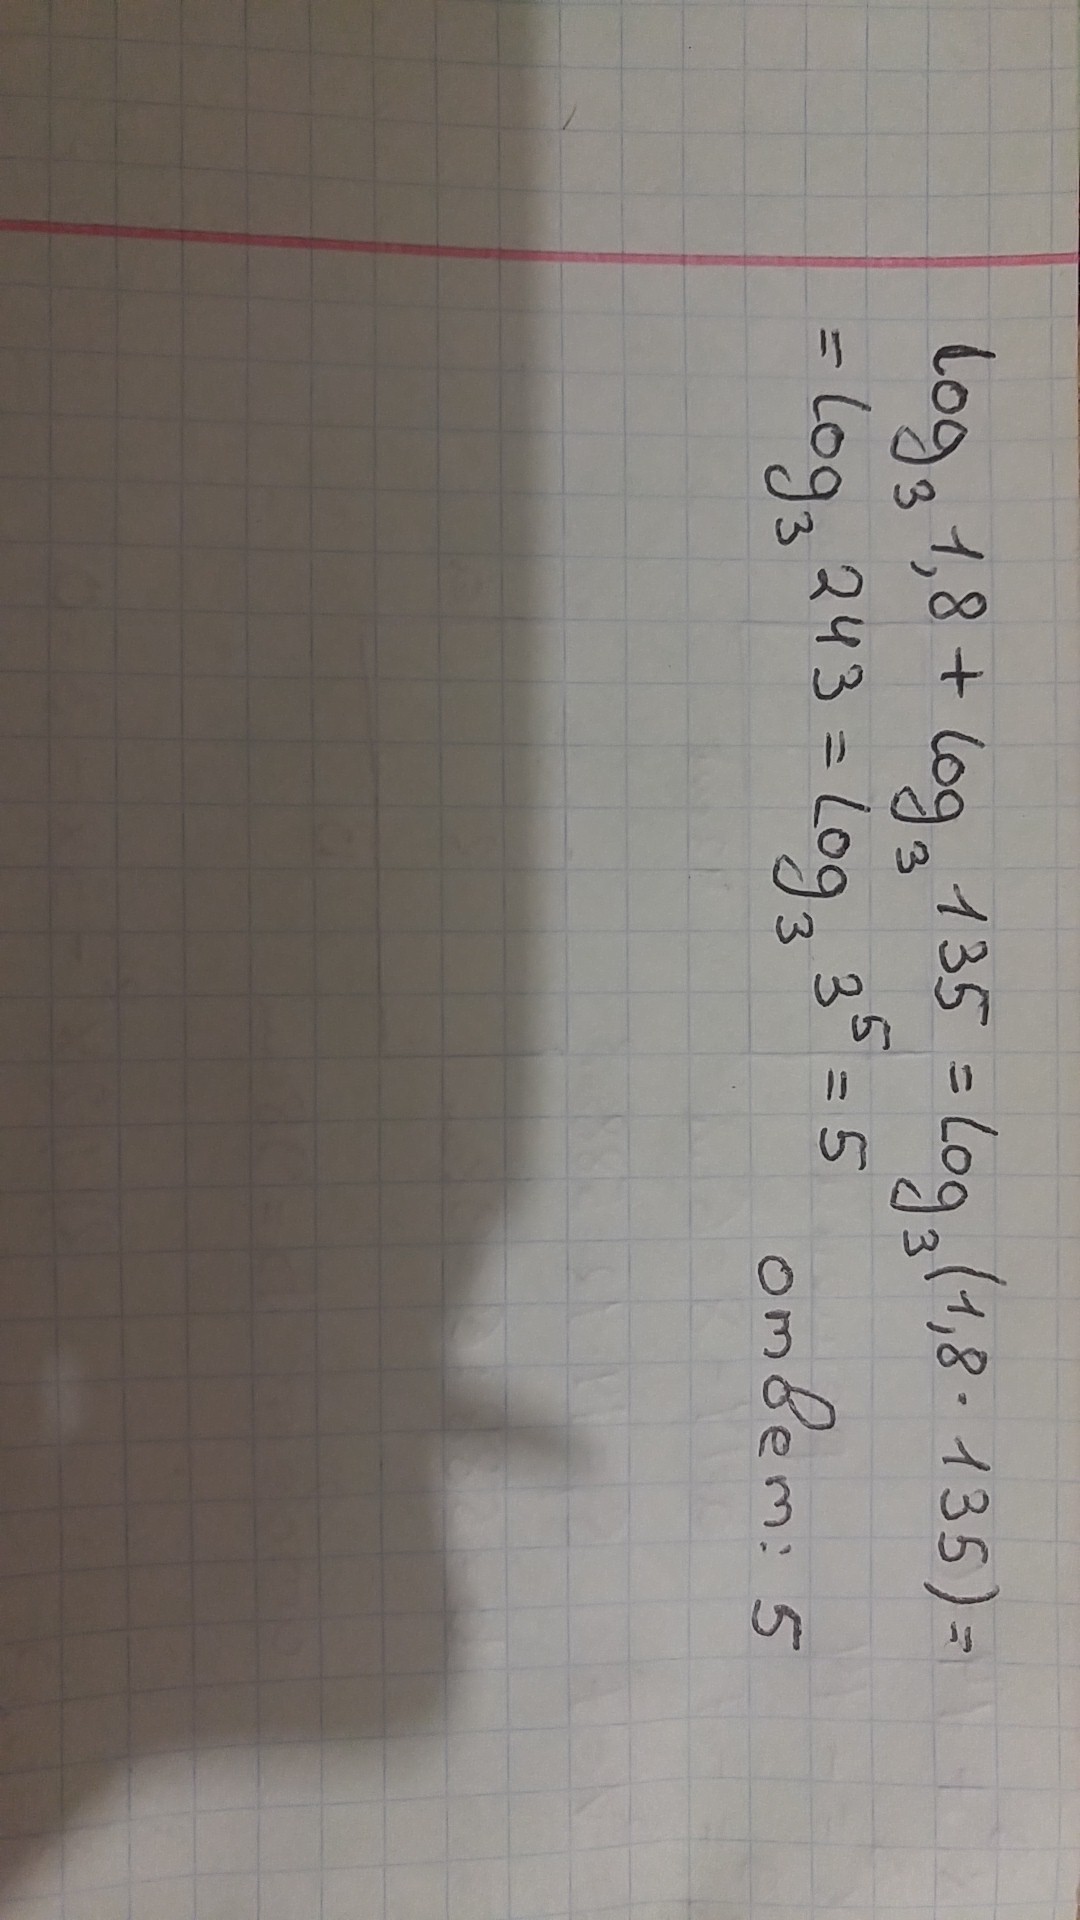 log₃ 1,8 + log₃ 135 = log₃(1,8 · 135) =
= log₃ 243 = log₃ 3⁵ = 5
ответ: 5